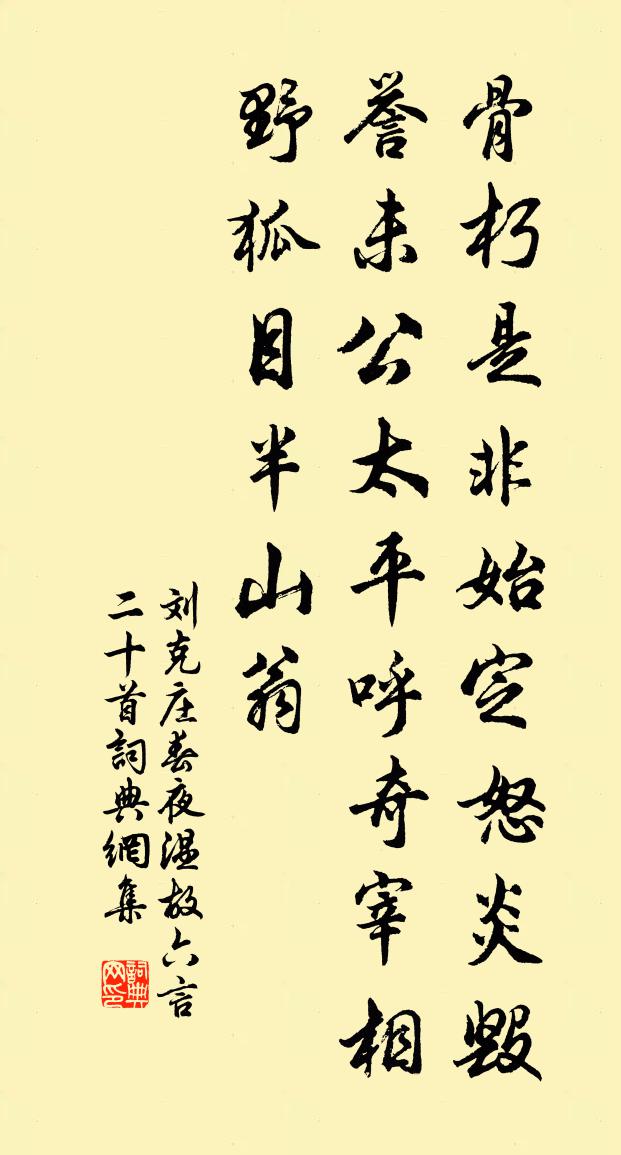 骨朽是非始定怒炎毁
誉未公太平呼奇宰相
野狐目半山翁
刘克庄春夜温故六言
二十首詞典網集
詞典
网印